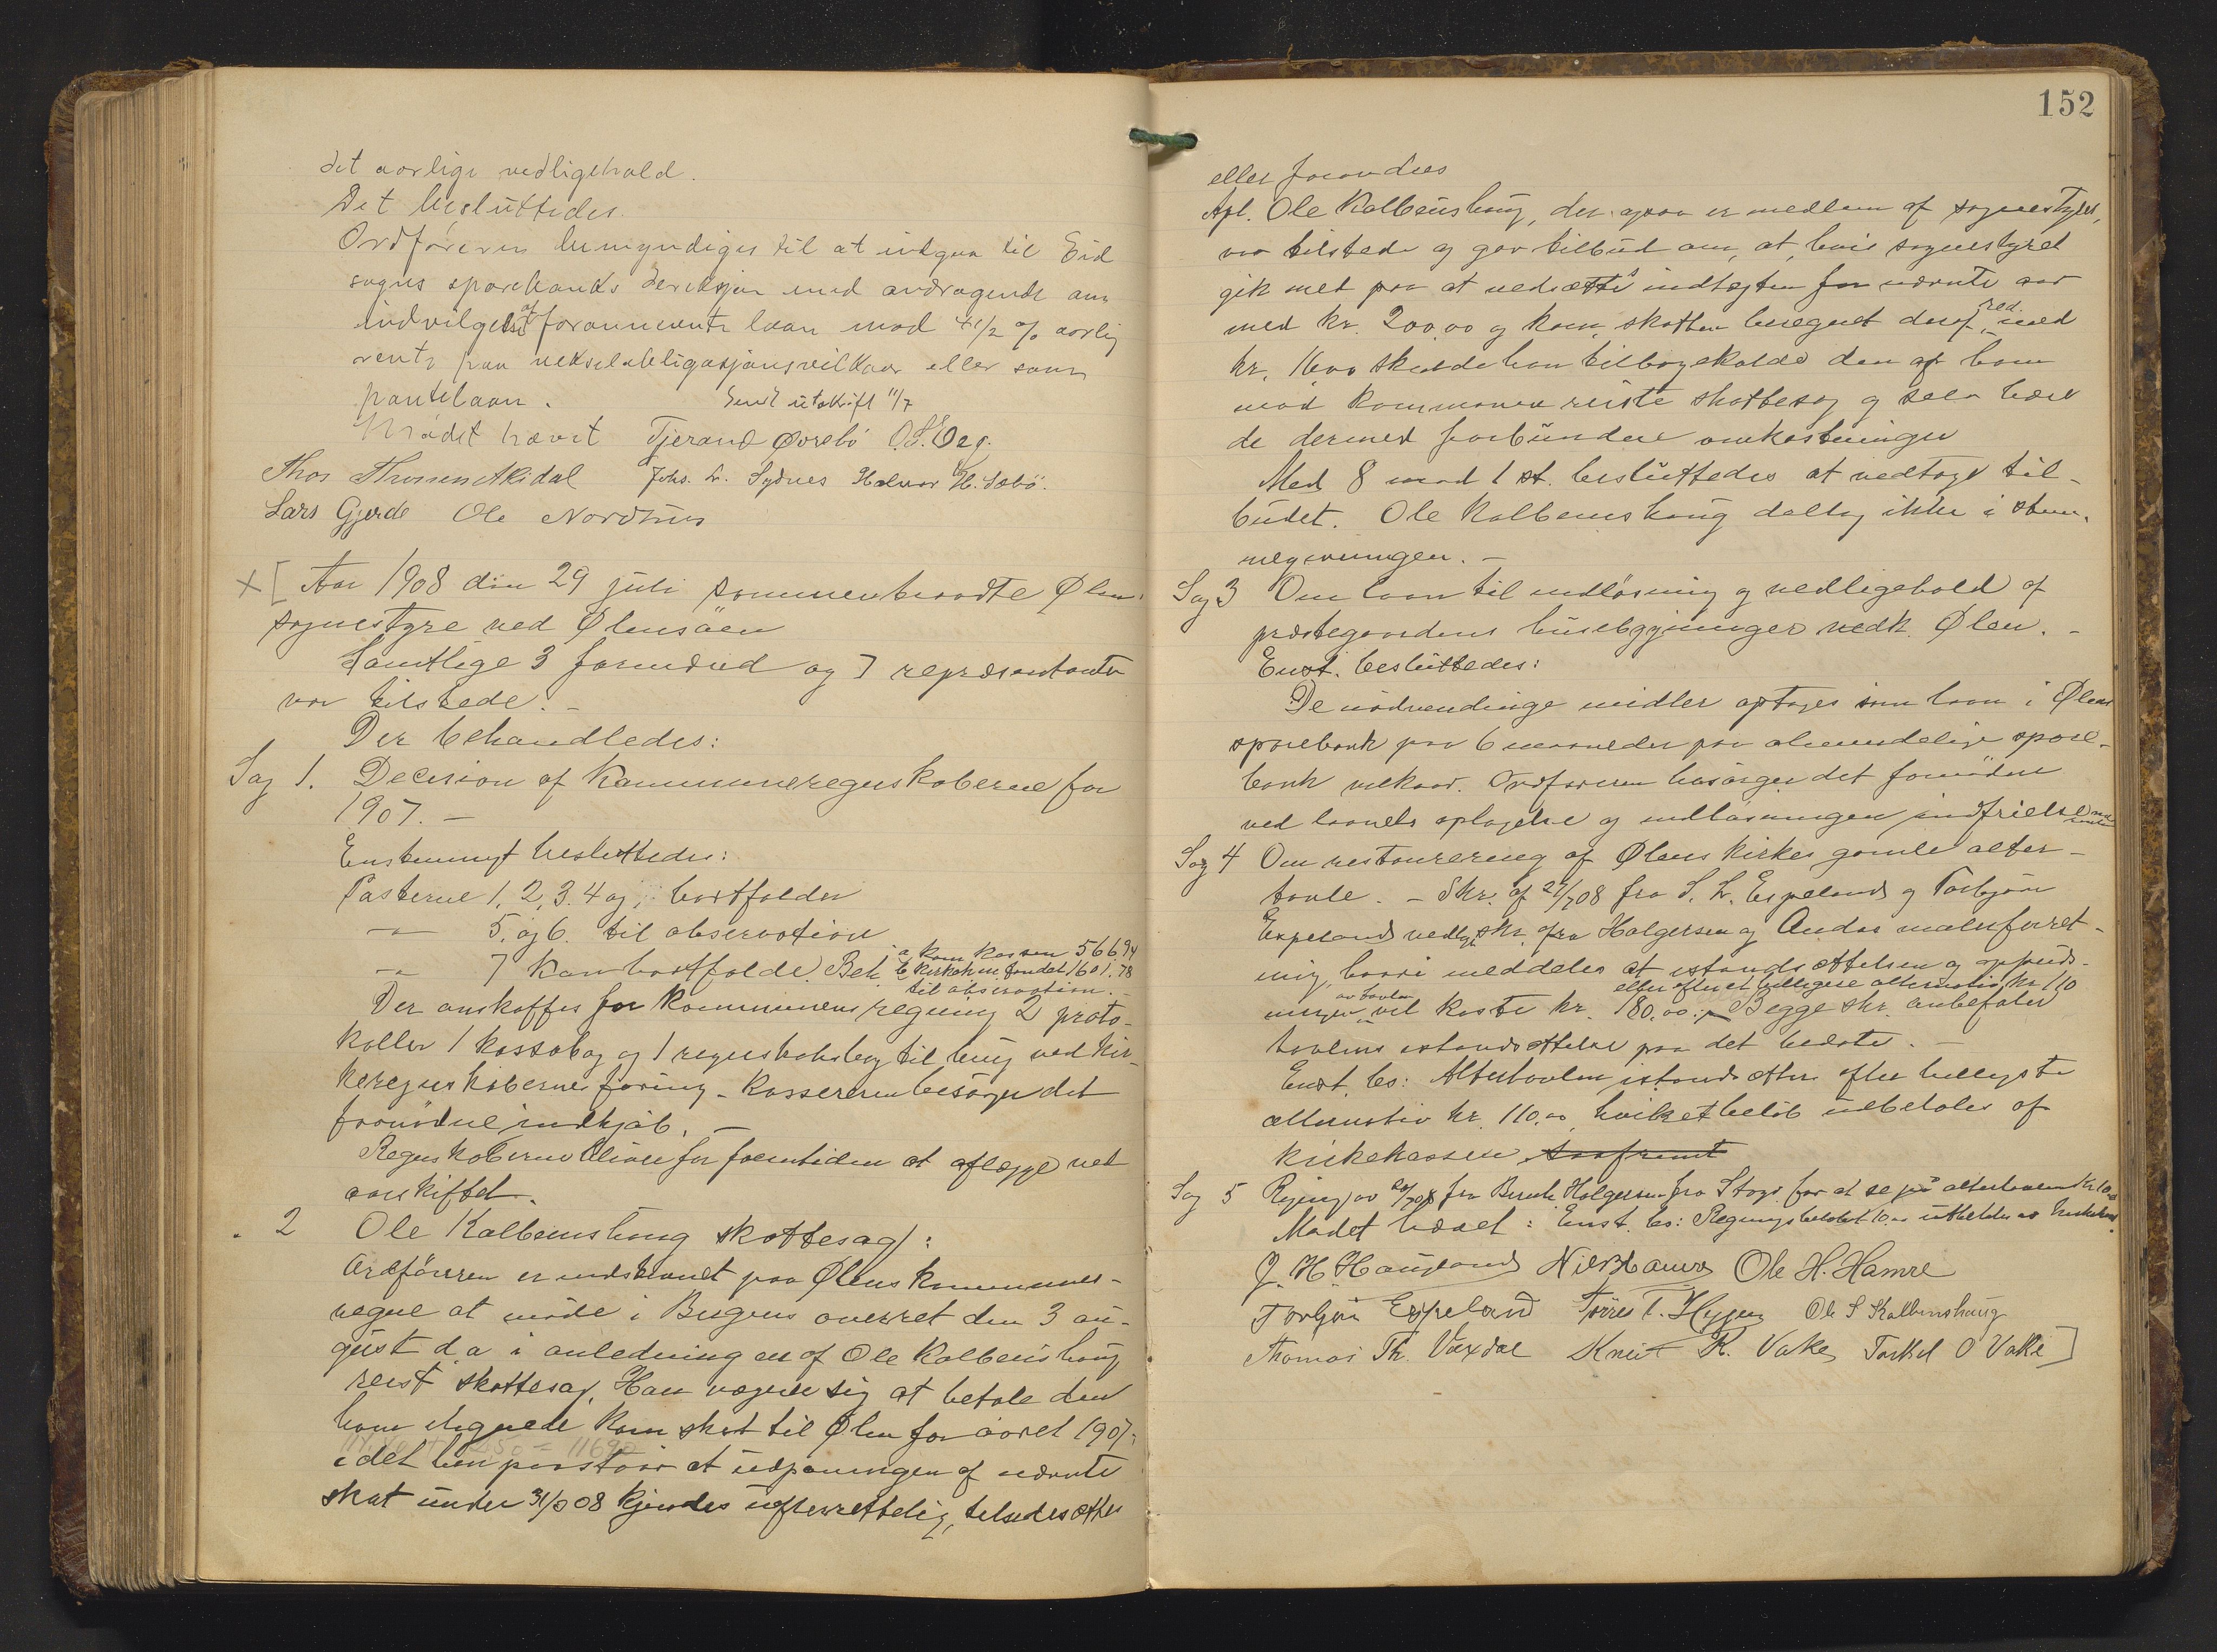 det aarlige vedligehold.
Det besluttedes.
Ordføreren bemyndiges til at indgaa til Eid
sogns sparebanks dereksjon med andragende om
indvilgelse af forannevnte laan mod 4 1/2 % aarlig
rente paa vekselobligasjonsvilkaar eller som
pantelaan. Sendt utskrift 11/7
Mødet hævet Tjerand Øvrebö O.S. Eeg.
Thos Thomsen Johs. L. Sydnes Halvor H. Sæbö.
Lars Gjerde Ole Nordhus
× [ Aar 1908 den 29 juli sammentraadte Ølens
sognestyre ved Ølensöen
Samtlige 3 formænd og 7 repræsentanter
var tilstede. –
Der behandledes:
Sag 1. Decision af Kommuneregnskaberne for
1907. –
Enstemmigt besluttedes:
Posterne 1, 2, 3. 4 og bortfalder
–"– 5. og 6. til observation
–"– 7 kan bortfalde. Beh. a kom kassen 566,94
b kirkekom. fondet 1601.78
til observation. –
Der anskaffes for kommunens regning 2 proto-
koller 1 kassabog og 1 regnskabsbog til brug ved kir-
keregnskabernes föring – Kassereren besörger det
fornödne indkjöb. –
Regnskaberne bliver for fremtiden at aflægge ved
aarskiftet.
2 Ole Kalbenshaug skattesag:
Ordföreren er indstevnet paa Ølens kommunes-
vegne at möde i Bergens overret den 3 au-
gust d.a. i anledning en af Ole Kalbenshaug
reist skattesag. Han vægrer sig at betale den
ham ilignede kom skat til Ølen for aaret 1907,
idet han paastaar at udpantningen af nævnte
skat under 31/3 08 kjendes uefterrettelig, tilsidesættes
152
eller forandres
Apl. Ole Kalbenshaug, der ogsaa er medlem af sognestyret,
var tilstede og gav tilbud om, at hvis sognestyret
gik med paa at nedsætte indtægten for nævnte aar
med kr. 200,00 og kom. skatten beregnet deraf red. med
kr. 16,00 skulde han tilbagekalde den af ham
mod kommunen reiste skattesag og selv bære
de dermed forbundne omkostninger
Med 8 mod 1 st. besluttedes at vedtage til-
budet. Ole Kalbenshaug deltog ikke i stem-
megivningen. –
Sag 3 Om laan til indlösning og vedligehold af
præstegaardens husebygninger vedk. Ølen. –
Enst. besluttedes:
De nödvendige midler optages som laan i Ølens
sparebank paa 6 maaneder paa almindelige spare-
bank vilkaar. Ordföreren besörger det fornödne
ved laanets optagelse og indlösningen indfrielse
Sag 4 Om restaurering af Ølens kirkes gamle alter-
tavle. – Skr. af 27/7 08 fra S. L. Espeland og Torbjörn
Espeland vedlagt skr. fra Holgersen og Andas malerforret-
ning, hvori meddeles at istandsættelsen og oppuds-
eller efter et billigere alternativ kr. 110
ningen av tavlen vil koste kr. 180,00. Begge skr. anbefaler
tavlens istandsættelse paa det bedste. –
Enst. bes: Altertavlen istandsættes efter billigste
alternativ kr. 110,00, hvilket belöb udbetales af
kirkekassen saafremt
Sag 5 Regning av 20/7 08 fra Bernh. Holgersen fra Stags. for at se på altertavlen Kr 10,00
Mødet hævet: Enst. bes: Regningsbeløbet 10.00 utbetales av kirkekas.
J. H. Haugland Nils Hamre Ole H. Hamre
Torbjörn Espeland Törres T. Hyggen Ole S Kalbenshaug
Thomas Th. Vaxdal Knut K. Vake Torkel O Vake ]